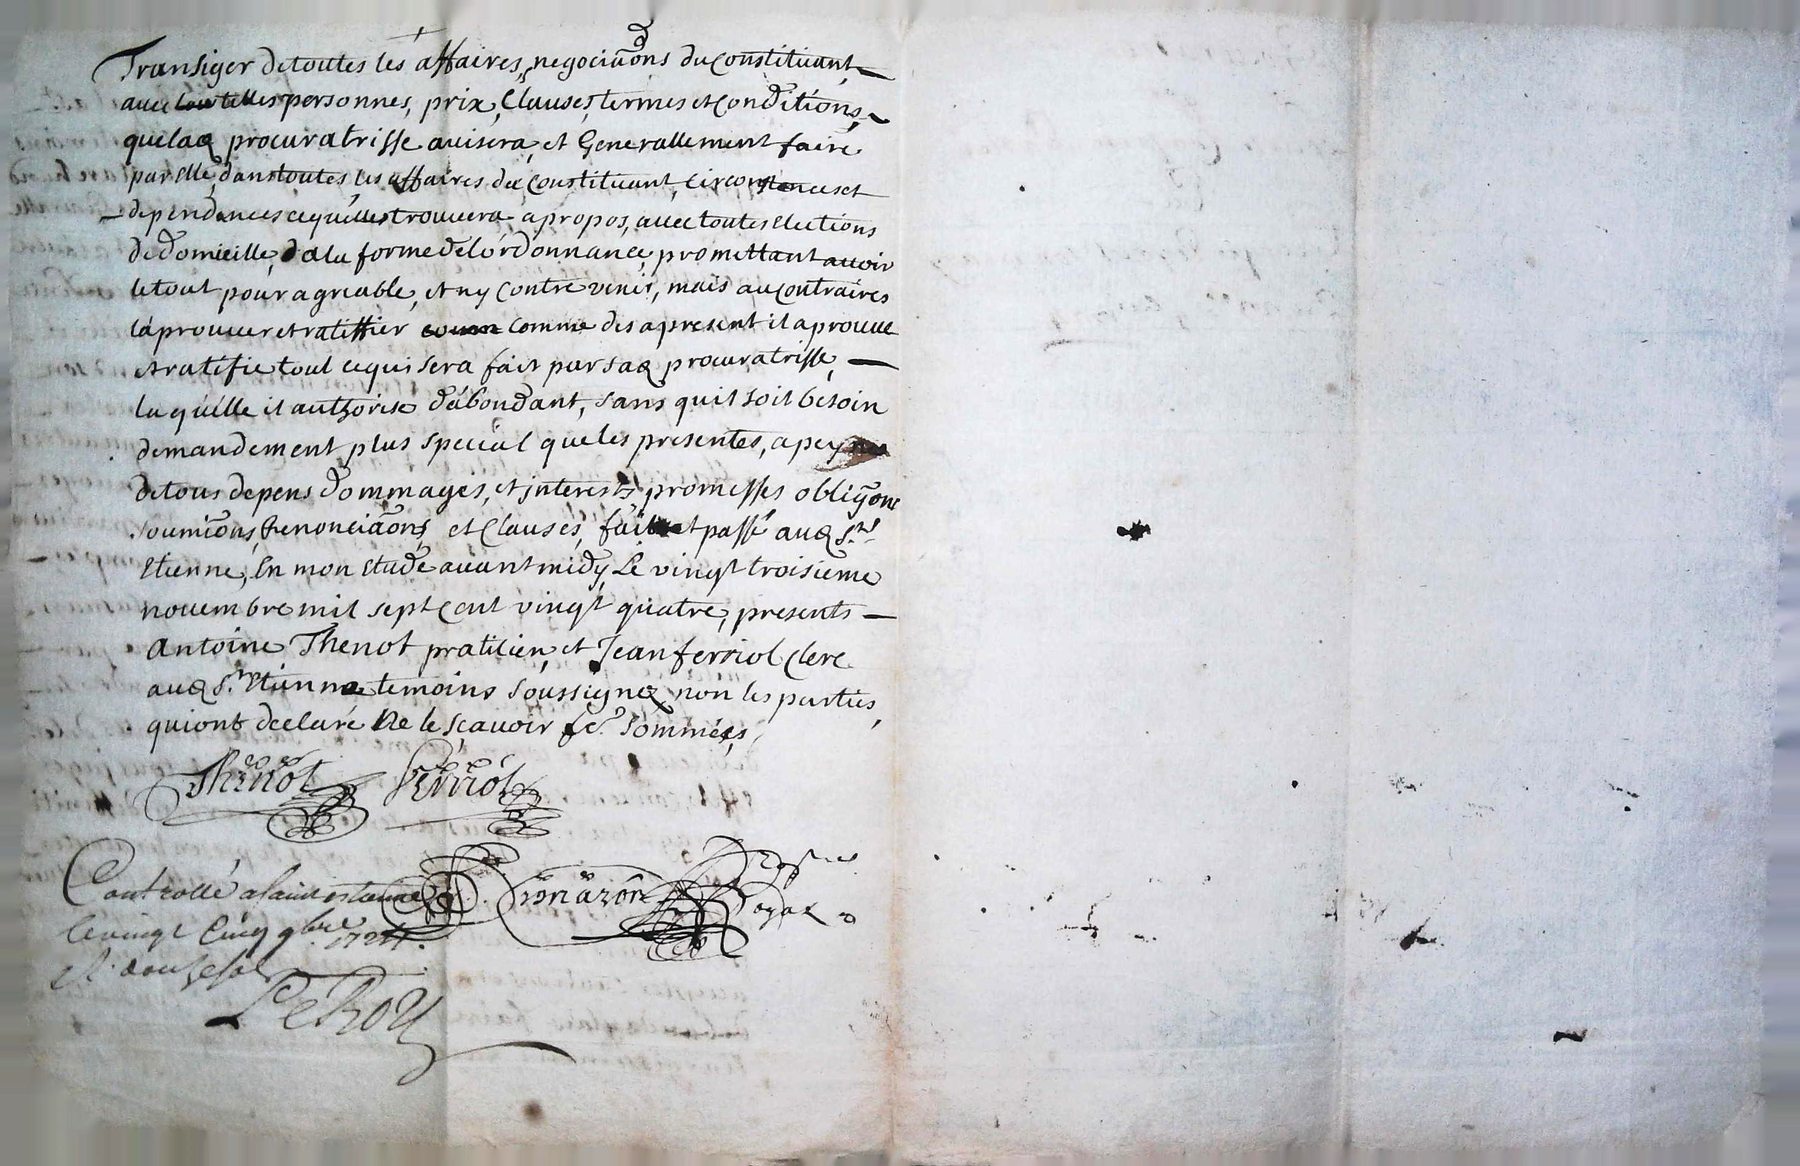 Transiger de toutes les affaires, negociaõns du constituant,
avec telles personnes, prix, Clauses, termes et conditions,
que laq procuratrisse avisera, et Generallement faire
par elle, dans toutes les affaires du Constituant, circonstences et
dependances ce qu'elle trouvera a propos, avec toutes elections
de domicille, a la forme de l'ordonnance, promettant avoir
le tout pour agreable, et ny contrevenir, mais au contraires
laprouver et ratiffier comme des a present il aprouve
et ratifie tout ce qui sera fait par saq procuratrisse,
la quelle il authorise d'abondant, sans quil soit besoin
de mandement plus special que les presentes, a peynes
de tous depens dommages, et jnterests, promesses obligaõns
soumiõns, Renonciaõns, et Clauses, fait et passé auq S.nt
Etienne, En mon etude avant midy, Le vingt troisieme
novembre mil sept cent vingt quatre, presents
Antoine Thenot praticien, et Jean ferriol Clerc
auq S.nt Etienne temoins soussignez non les parties,
qui ont declaré Ne le sçavoir fe. sommées,
Thenot ferriol
Controllé a saint estienne
le vingt Cinq 9bre 1724
R. douze sol
Royal
LeRoy